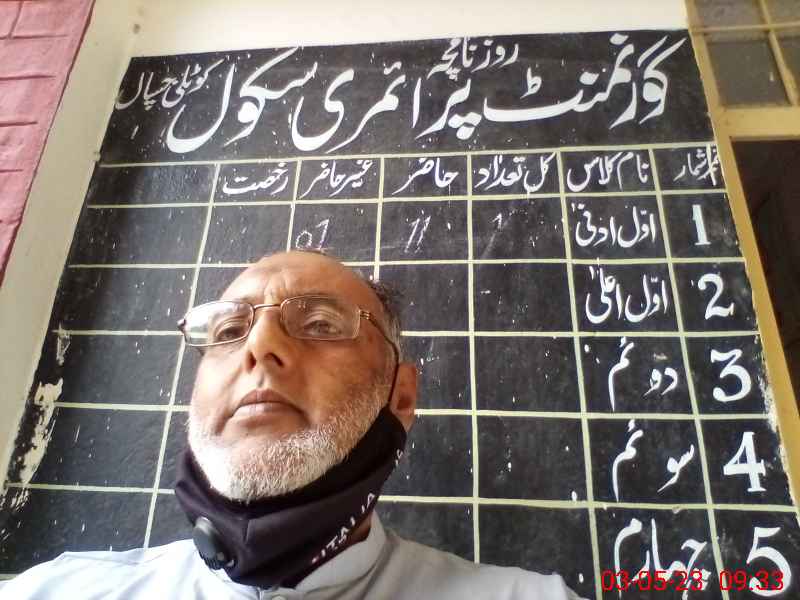 روزنامچہ
گورنمنٹ پرائمری سکول کوٹلی
نمبر شمار نام کلاس کل تعداد حاضر غیر حاضر رخصت
1 اوّل ادنیٰ 11 01
2 اوّل اعلیٰ
3 دوئم
4 سوئم
5 چہارم
ITALIA
03-05-23 09:33